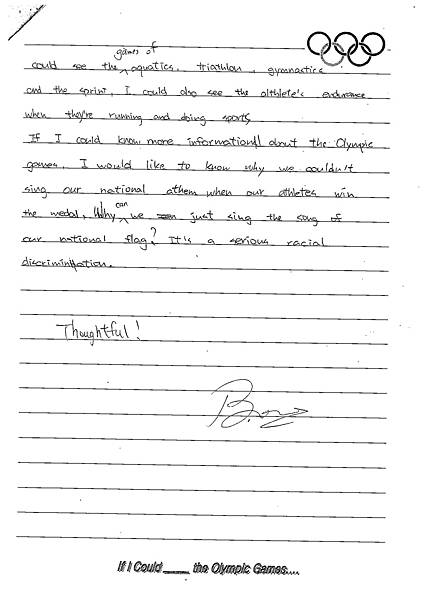 could see the games of aquatics, triathlon, gymnastics
and the sprint, I could also see the althlete's endurance
when they're running and doing sports.
If I could know more information about the Olympic
games, I would like to know why we couldn't
sing our national athem when our athletes win
the medal, Why can we just sing the song of
our national flag? It's a serious racial
discrimination.
Thoughtful!
If I Could ____ the Olympic Games....